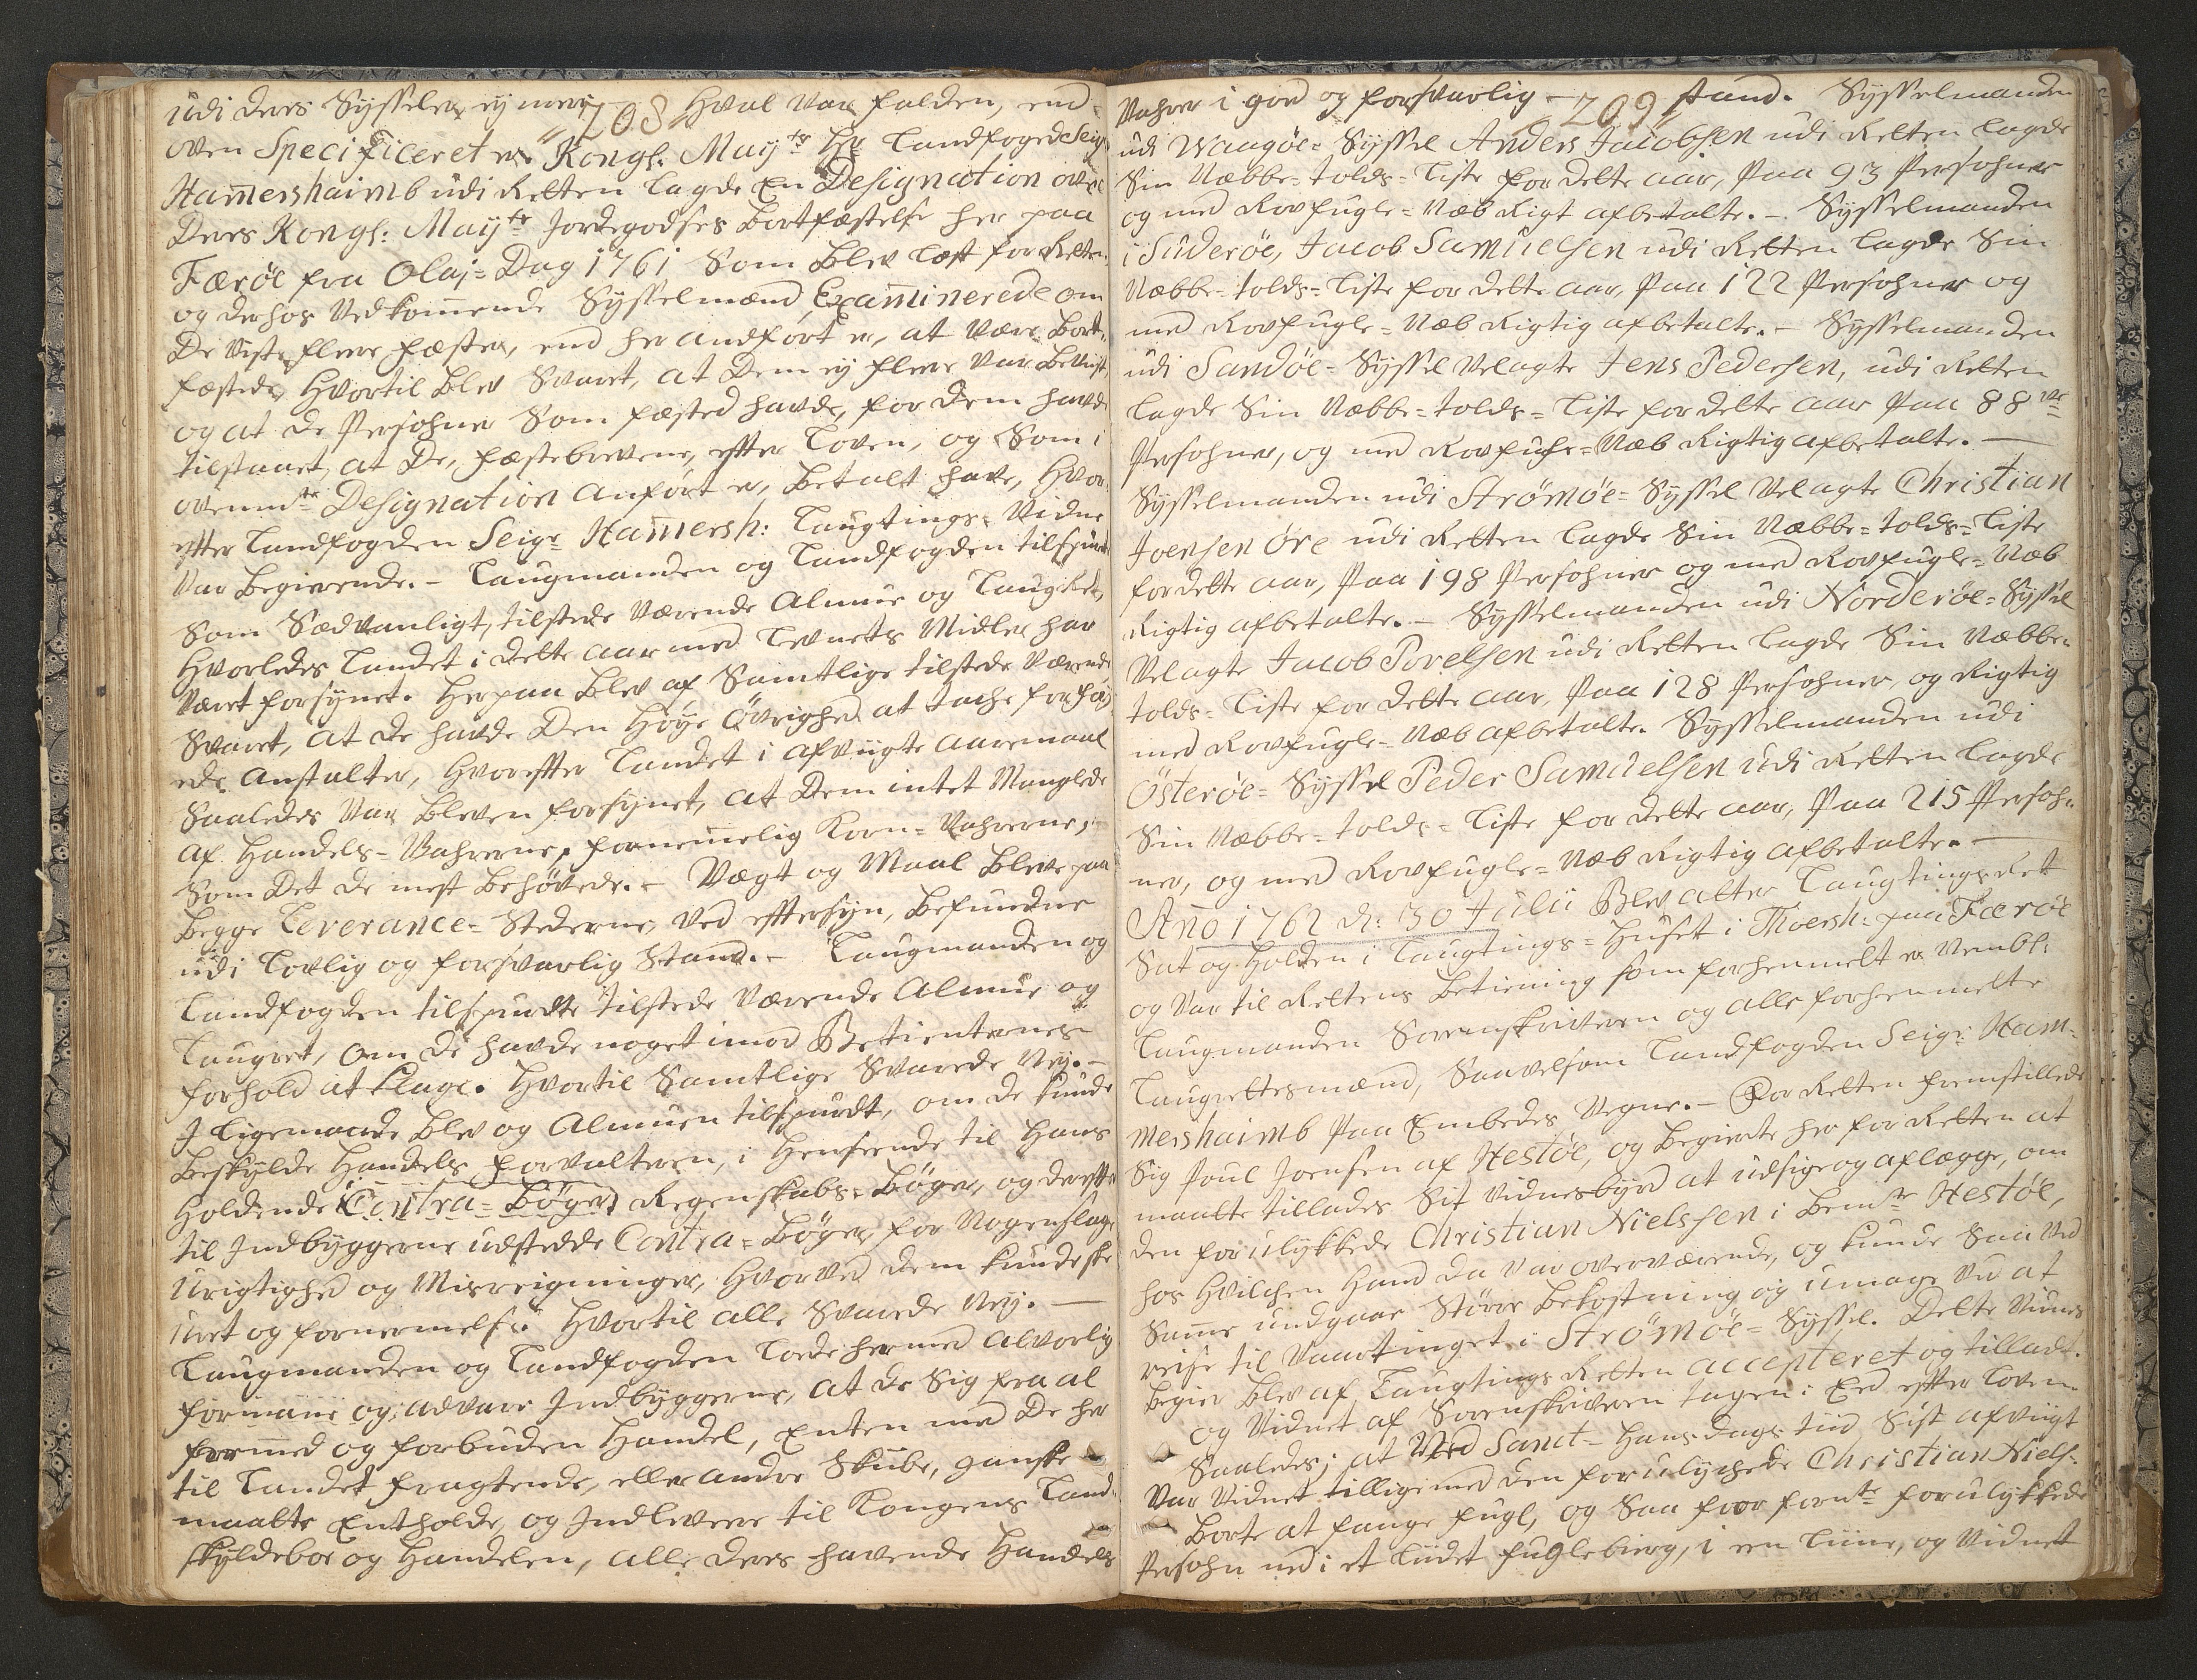 208
udi deres Sysseler ey meer Hval var falden, end
oven Specificeret er. Kongl: Mayts Hr Landfoged Seigr
Hamershaimb udi Retten lagde En Designation over
Deres Kongl: Mayts Jordegodses Bortfæstelse her paa
Færöe fra Olaj=Dag 1761 Som Blev læst for Retten,
og derhos Vedkommende Sysselmænd Examinerede om
De viste flere fæster, end her andfört er, at være Bort=
fæstede, Hvortil Blev Svaret, at Dem ey flere var Bevust,
og at de Persohner Som fæsted havde, for dem havde
tilstaaet, at De, fæstebrevene, efter Loven, og Som i
ovennte Designation anfört er, Betalt have, Hvor=
efter Landfogden Seigr Hamersh: Laugtings=Vidne
var Begierende. - Laugmanden og Landfogden tilspurte
Som Sædvanligt, tilstede Værende Almue og Laugret,
Hvorledes Landet i dette aar med Levnets Midler har
været forsynet. Herpaa Blev af Samtlige tilstede Værende
Svaret, at de havde Den Höye Övrighed at tache for föy=
ede Anstalter, Hvorefter Landet i afvigte aaremaal
Saaledes var bleven forsynet, at Dem intet Manglede
af Handels=Vahrerne, fornemelig Korn=Vahrerne,
Som Det de mest Behövede. - Vægt og Maal Bleve paa
Begge Leverance=Stederne, ved eftersyn, Befundne
udi Lovlig og forsvarlig Stand. - Laugmanden og
Landfogden tilspurdte tilstede Værende Almue og
Laugret, om de havde noget imod Betienternes
forhold at klage. Hvortil Samtlige Svarede Ney. -
I Ligemaade Blev og Almuen tilspurdt, om de kunde
Beskylde Handels forvalteren, i Henseende til Hans
Holdende (Contra=Böger) Regenskabs=Böger, og derefter
til Indbyggerne udstedde Contra=Böger, for Nogenslags
Urigtighed og Misregninger, Hvorved Dem kunde skee
Uret og fornermelse. Hvortil alle Svarede Ney. -
Laugmanden og Landfogden Lod hermed alvorlig
formane og advare Indbyggerne, at de Sig fra al
formeed og forbuden Handel, Enten med De her
til Landet fragtende, eller andre Skibe, ganske
maatte Entholde, og Indlevere til Kongens Land=
skyldeboe og Handelen, alle deres havende Handels
209
Vahrer i god og forsvarlig Stand. Sysselmanden
udi Waagöe=Syssel Anders Jacobsen udi Retten lagde
Sin Næbbe=tolds=Liste for dette aar, Paa 93 Persohner
og med Rovfugle=Næb Rigt afbetalte. - Sysselmanden
i Suderöe, Jacob Samuelsen udi Retten lagde Sin
Næbbe=tolds=Liste for dette aar, Paa 122 Persohner og
med Rovfugle=Næb Rigtig afbetalte. - Sysselmanden
udi Sandöe=Syssel Velagte Jens Pedersen, udi Retten
lagde Sin Næbbe=tolds=Liste for dette aar Paa 88
Persohner, og med Rovfugle=Næb Rigtig afbetalte. -
Sysselmanden udi Strömöe=Syssel Velagte Christian
Joensen Öre udi Retten lagde Sin Næbbe=tolds=Liste
for dette aar, Paa 198 Persohner og med Rovfugle=Næb
Rigtig afbetalte. - Sysselmanden udi Norderöe=Syssel
Velagte Jacob Povelsen udi Retten lagde Sin Næbbe=
tolds=Liste for dette aar, Paa 128 Persohner, og Rigtig
med Rovfugle=Næb afbetalte. Sysselmanden udi
Österöe=Syssel Peder Samuelsen udi Retten lagde
Sin Næbbe=tolds=Liste for dette aar, Paa 215 Persoh=
ner, og med Rovfugle=Næb Rigtig afbetalte. -
Ano 1762 d: 30 Julii Blev atter Laugtings Ret
Sat og Holden i Laugtings=Huset i Thorsh: paa Færöe
og var til Rettens Betiening som forhenmelt er Vembl:
Laugmanden Sorenskriveren og alle forhenmelte
Laugrettesmænd, Saavelsom Landfogden Seigr: Ham=
mershaimb Paa Embedes Vegne. - For Retten fremstillede
Sig Poul Joensen af Hestöe, og Begierte her for Retten at
maatte tillades Sit Vidnesbyrd at udsige og aflægge, om
den forulykkede Christian Nielssen i Bemte Hestöe,
hos Hvilchen Hand da var overværende, og kunde Saa Ved
Samme undgaae Större Bekostning og umage Ved at
reise til Vaartinget i Strömöe=Syssel. Dette Vidnes
Begier Blev af Laugtings Retten accepteret og tilladt.
og Vidnet af Sorenskriveren tagen i Eed efter Loven
Saaledes; at Ved Sanct=Hans dags tiid Sist afvigt
Var Vidnet tilligemed den forulychede Christian Niels:
Borte at fange fugl, og Saa foer fornte forulykkede
Persohn ned i et lidet fuglebierg, i een Liine, og Vidnet